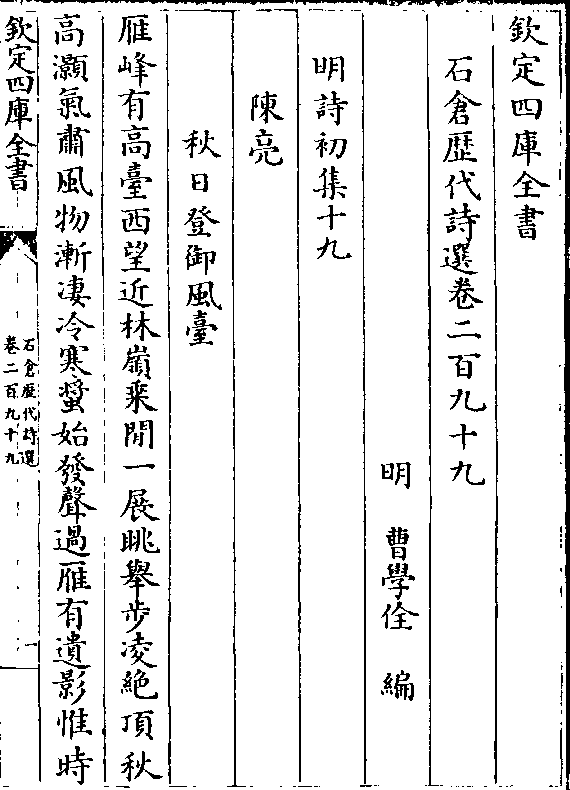 欽定四庫全書
石倉歴代詩選卷二百九十九
明 曹學佺 編
明詩初集十九
陳亮
秋日登御風臺
雁峰有高臺西望近林嶺乗閒一展眺舉步凌絶頂秋
高灝氣肅風物漸凄冷寒螿始發聲過雁有遺影惟時
欽定四庫全書
石倉歴代詩選
卷二百九十九
一